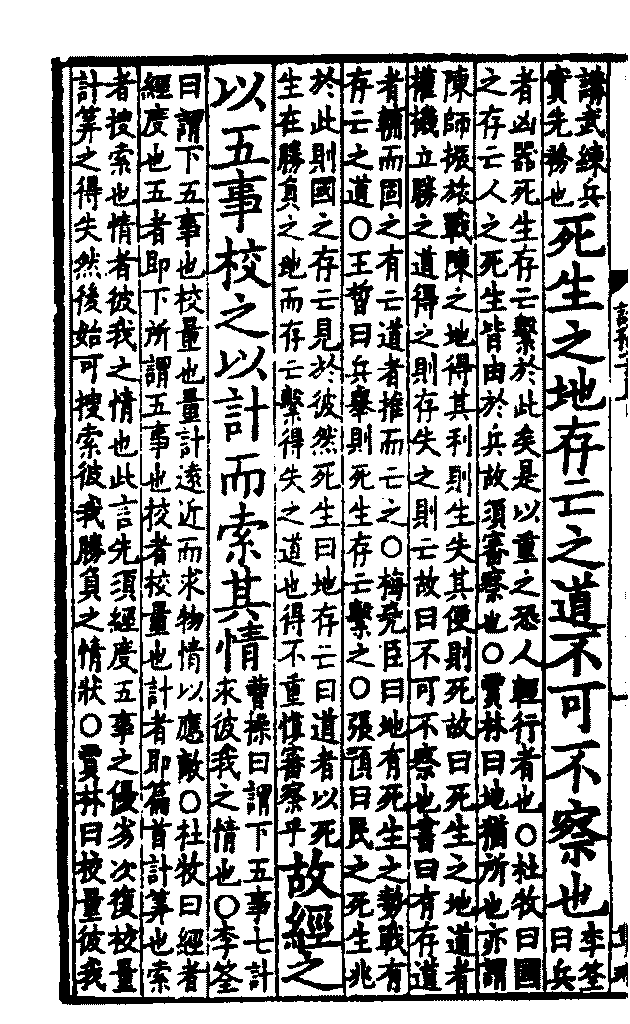 講武練兵
實先務也
死生之地存亡之道不可不察也
李筌
曰兵
者凶器死生存亡繫於此矣是以重之恐人輕行者也○杜牧曰國
之存亡人之死生皆由於兵故須審察也○賈林曰地猶所也亦謂
陳師振旅戰陳之地得其利則生失其便則死故曰死生之地道者
權機立勝之道得之則存失之則亡故曰不可不察也書曰有存道
者輔而固之有亡道者推而亡之○梅堯臣曰地有死生之勢戰有
存亡之道○王晳曰兵舉則死生存亡繫之○張預曰民之死生兆
於此則國之存亡見於彼然死生曰地存亡曰道者以死
生在勝負之地而存亡繫得失之道也得不重慎審察乎
故經之
以五事校之以計而索其情
曹操曰謂下五事七計
求彼我之情也○李筌
曰謂下五事也校量也量計遠近而求物情以應敵○杜牧曰經者
經度也五者即下所謂五事也校者校量也計者即篇首計算也索
者搜索也情者彼我之情也此言先須經度五事之優劣次復校量
計算之得失然後始可搜索彼我勝負之情狀○賈林曰校量彼我